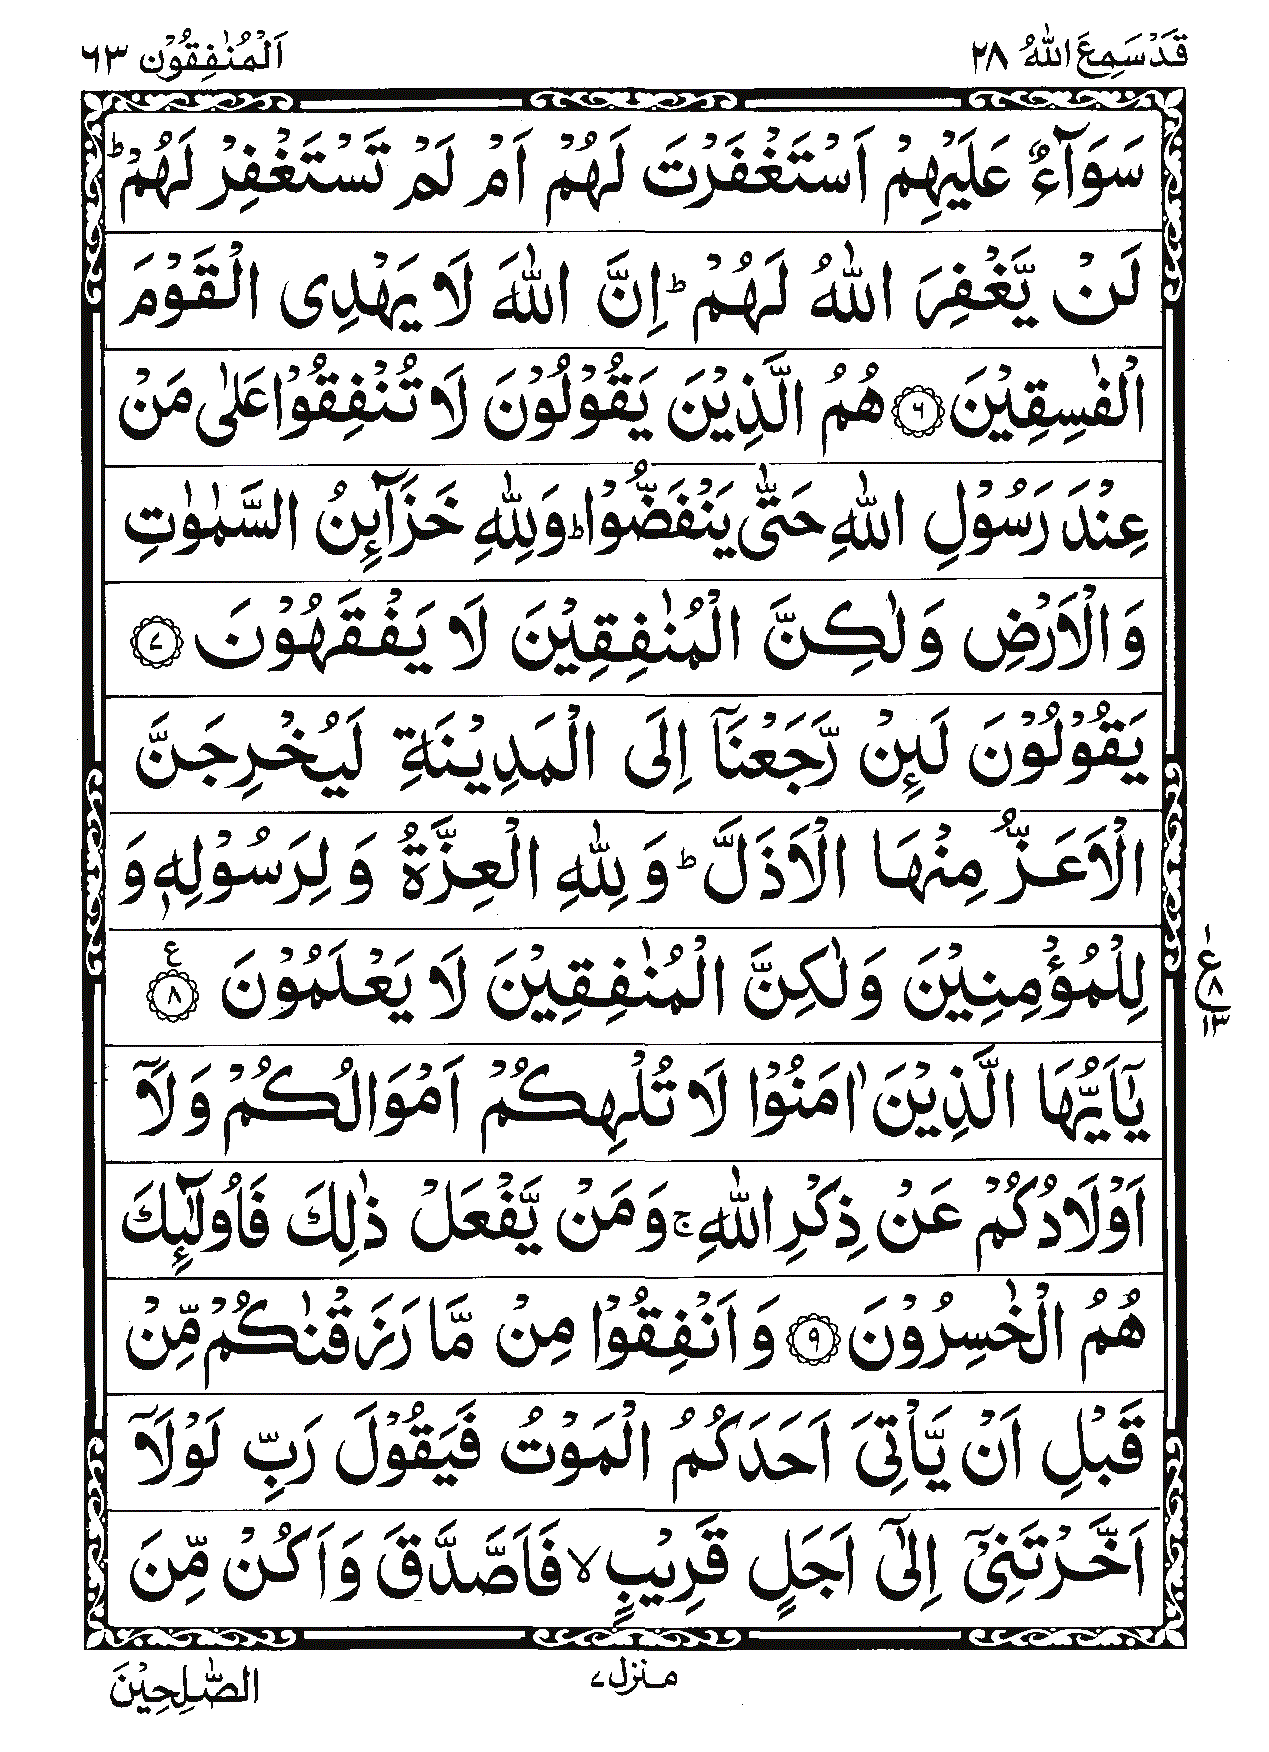 قَدۡ سَمِعَ اللّٰهُ ۲۸
اَلۡمُنٰفِقُوۡن ۶۳
سَوَآءٌ عَلَيۡهِمۡ اَسۡتَغۡفَرۡتَ لَهُمۡ اَمۡ لَمۡ تَسۡتَغۡفِرۡ لَهُمۡ ؕ
لَنۡ يَّغۡفِرَ اللّٰهُ لَهُمۡ ؕ اِنَّ اللّٰهَ لَا يَهۡدِى الۡقَوۡمَ
الۡفٰسِقِيۡنَ ۶ هُمُ الَّذِيۡنَ يَقُوۡلُوۡنَ لَا تُنۡفِقُوۡا عَلٰى مَنۡ
عِنۡدَ رَسُوۡلِ اللّٰهِ حَتّٰى يَنۡفَضُّوۡا ؕ وَلِلّٰهِ خَزَآٮِٕنُ السَّمٰوٰتِ
وَالۡاَرۡضِ وَلٰكِنَّ الۡمُنٰفِقِيۡنَ لَا يَفۡقَهُوۡنَ ۷
يَقُوۡلُوۡنَ لَٮِٕنۡ رَّجَعۡنَاۤ اِلَى الۡمَدِيۡنَةِ لَيُخۡرِجَنَّ
الۡاَعَزُّ مِنۡهَا الۡاَذَلَّ ؕ وَ لِلّٰهِ الۡعِزَّةُ وَ لِرَسُوۡلِهٖ وَ
لِلۡمُؤۡمِنِيۡنَ وَلٰكِنَّ الۡمُنٰفِقِيۡنَ لَا يَعۡلَمُوۡنَ ۸ ع
۱
ع ۸
۱۳
يٰۤاَيُّهَا الَّذِيۡنَ اٰمَنُوۡا لَا تُلۡهِكُمۡ اَمۡوَالُكُمۡ وَلَاۤ
اَوۡلَادُكُمۡ عَنۡ ذِكۡرِ اللّٰهِ ۚ وَمَنۡ يَّفۡعَلۡ ذٰلِكَ فَاُولٰٓٮِٕكَ
هُمُ الۡخٰسِرُوۡنَ ۹ وَاَنۡفِقُوۡا مِنۡ مَّا رَزَقۡنٰكُمۡ مِّنۡ
قَبۡلِ اَنۡ يَّاۡتِىَ اَحَدَكُمُ الۡمَوۡتُ فَيَقُوۡلَ رَبِّ لَوۡلَاۤ
اَخَّرۡتَنِىۡۤ اِلٰٓى اَجَلٍ قَرِيۡبٍ ۙ فَاَصَّدَّقَ وَاَكُنۡ مِّنَ
منزل ۷
الصّٰلِحِيۡنَ